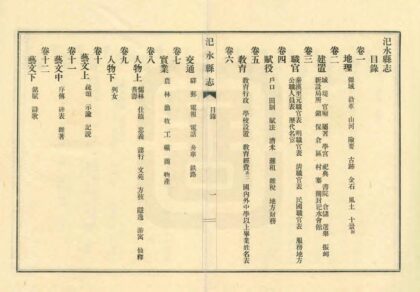 汜水縣志
目錄
卷一
地理 疆域 沿革 山河 險要 古蹟 金石 風土 十景
卷二
建置 城堤 官廨 屬署 學宮 祀典 書院 倉儲 選舉 振卹
新設局所 鎮 保 會 區 村寨 開封汜水會館
卷三
職官 秦漢至元職官表 明職官表 清職官表 民國職官表 服務地方
公職人員表 歷代名官
卷四
賦役 戶口 田制 賦法 漕米 鹽租 雜稅 地方財務
卷五
教育 教育行政 學校設置 教育經費 國內外中學以上畢業姓名表
卷六
交通 驛 郵 電報 電話 舟車 鐵路
卷七
實業 農林 漁牧 工 礦 商 物產
卷八
人物上 儒林 仕績 忠義 諸行 文苑 方技 隱逸 游寓 仙釋
耆壽
卷九
人物下 列女
卷十
藝文上 疏頌 示諭 記說
卷十一
藝文中 序傳 碑表 雜著
卷十二
藝文下 銘賦 詩歌
汜水縣志 目錄 一